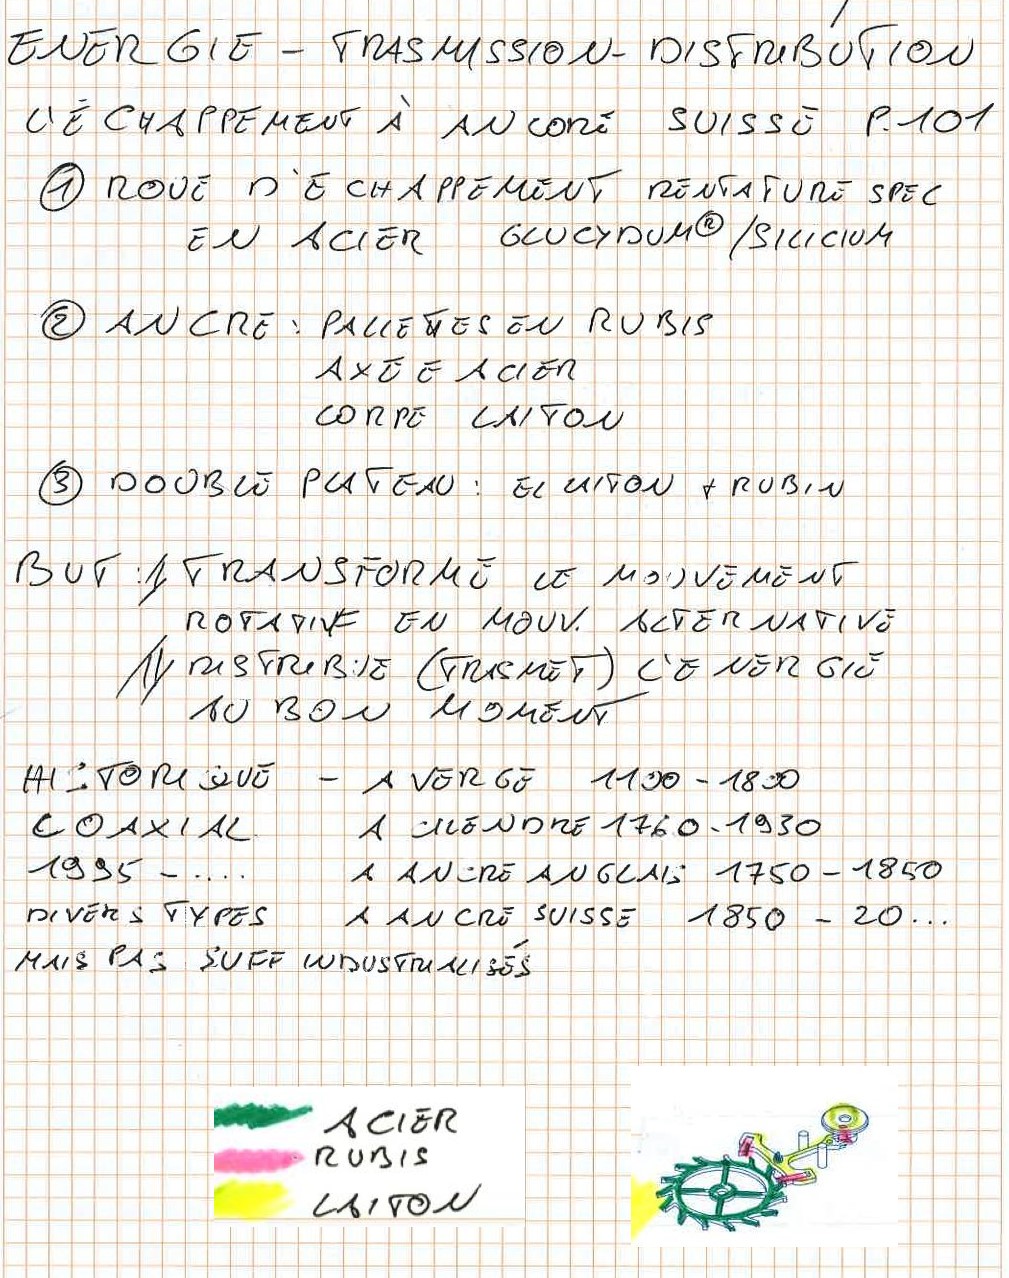 ENERGIE - TRASMISSION - DISTRIBUTION
L'ÉCHAPPEMENT À ANCORE SUISSE P. 101
① ROUE D'ECHAPPEMENT DENTATURE SPEC
EN ACIER GLUCYDUM® / SILICIUM
② ANCRE : PALLETTES EN RUBIS
AXE E ACIER
CORPE LAITON
③ DOUBLE PLATEAU : EL LAITON + RUBIN
BUT : 1/ TRANSFORME LE MOUVEMENT
ROTATIVE EN MOUV. ALTERNATIVE
DISTRIBUE (TRASMET) L'ENERGIE
AU BON MOMENT
HISTORIQUE - A VERGE 1100 - 1800
COAXIAL A CILENDRE 1760 - 1930
1995 - .... A ANCRE ANGLAIS 1750 - 1850
DIVERS TYPES A ANCRE SUISSE 1850 - 20...
MAIS PAS SUFF INDUSTRIALISÉS
ACIER
RUBIS
LAITON